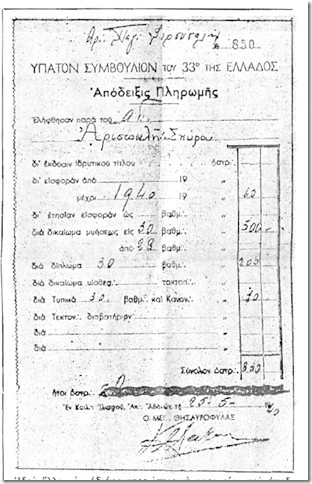 № 850
ΥΠΑΤΟΝ ΣΥΜΒΟΥΛΙΟΝ ΤΟΥ 33° ΤΗΣ ΕΛΛΑΔΟΣ
Ἀπόδειξις Πληρωμῆς
Ἐλήφθησαν παρὰ τοῦ ἀδ.
Σπύρο
δι' ἔκδοσιν ἱδρυτικοῦ τίτλου δστρ.
δι' εἰσφορὰν ἀπὸ 19 „
μέχρι 1940 19 „ 60
δι' ἐτησίαν εἰσφορὰν ὡς βαθμ. „
διὰ δικαίωμα μυήσεως εἰς 30 βαθμ. „ 500
ἀπὸ βαθμ. „
διὰ δίπλωμα 30 βαθμ. „ 200
διὰ δικαίωμα υἱοθεσ. „
διὰ Τυπικὰ 30 βαθμ. καὶ Κανον. „ 70
διὰ Τεκτον. διαβατήριον „
διὰ „
διὰ „
Σύνολον δστρ. 830
ἤτοι δστρ.
Ἐν Ἀθηνῶν τῇ 25-5- 19
Ο ΜΕΓ. ΘΗΣΑΥΡΟΦΥΛΑΞ